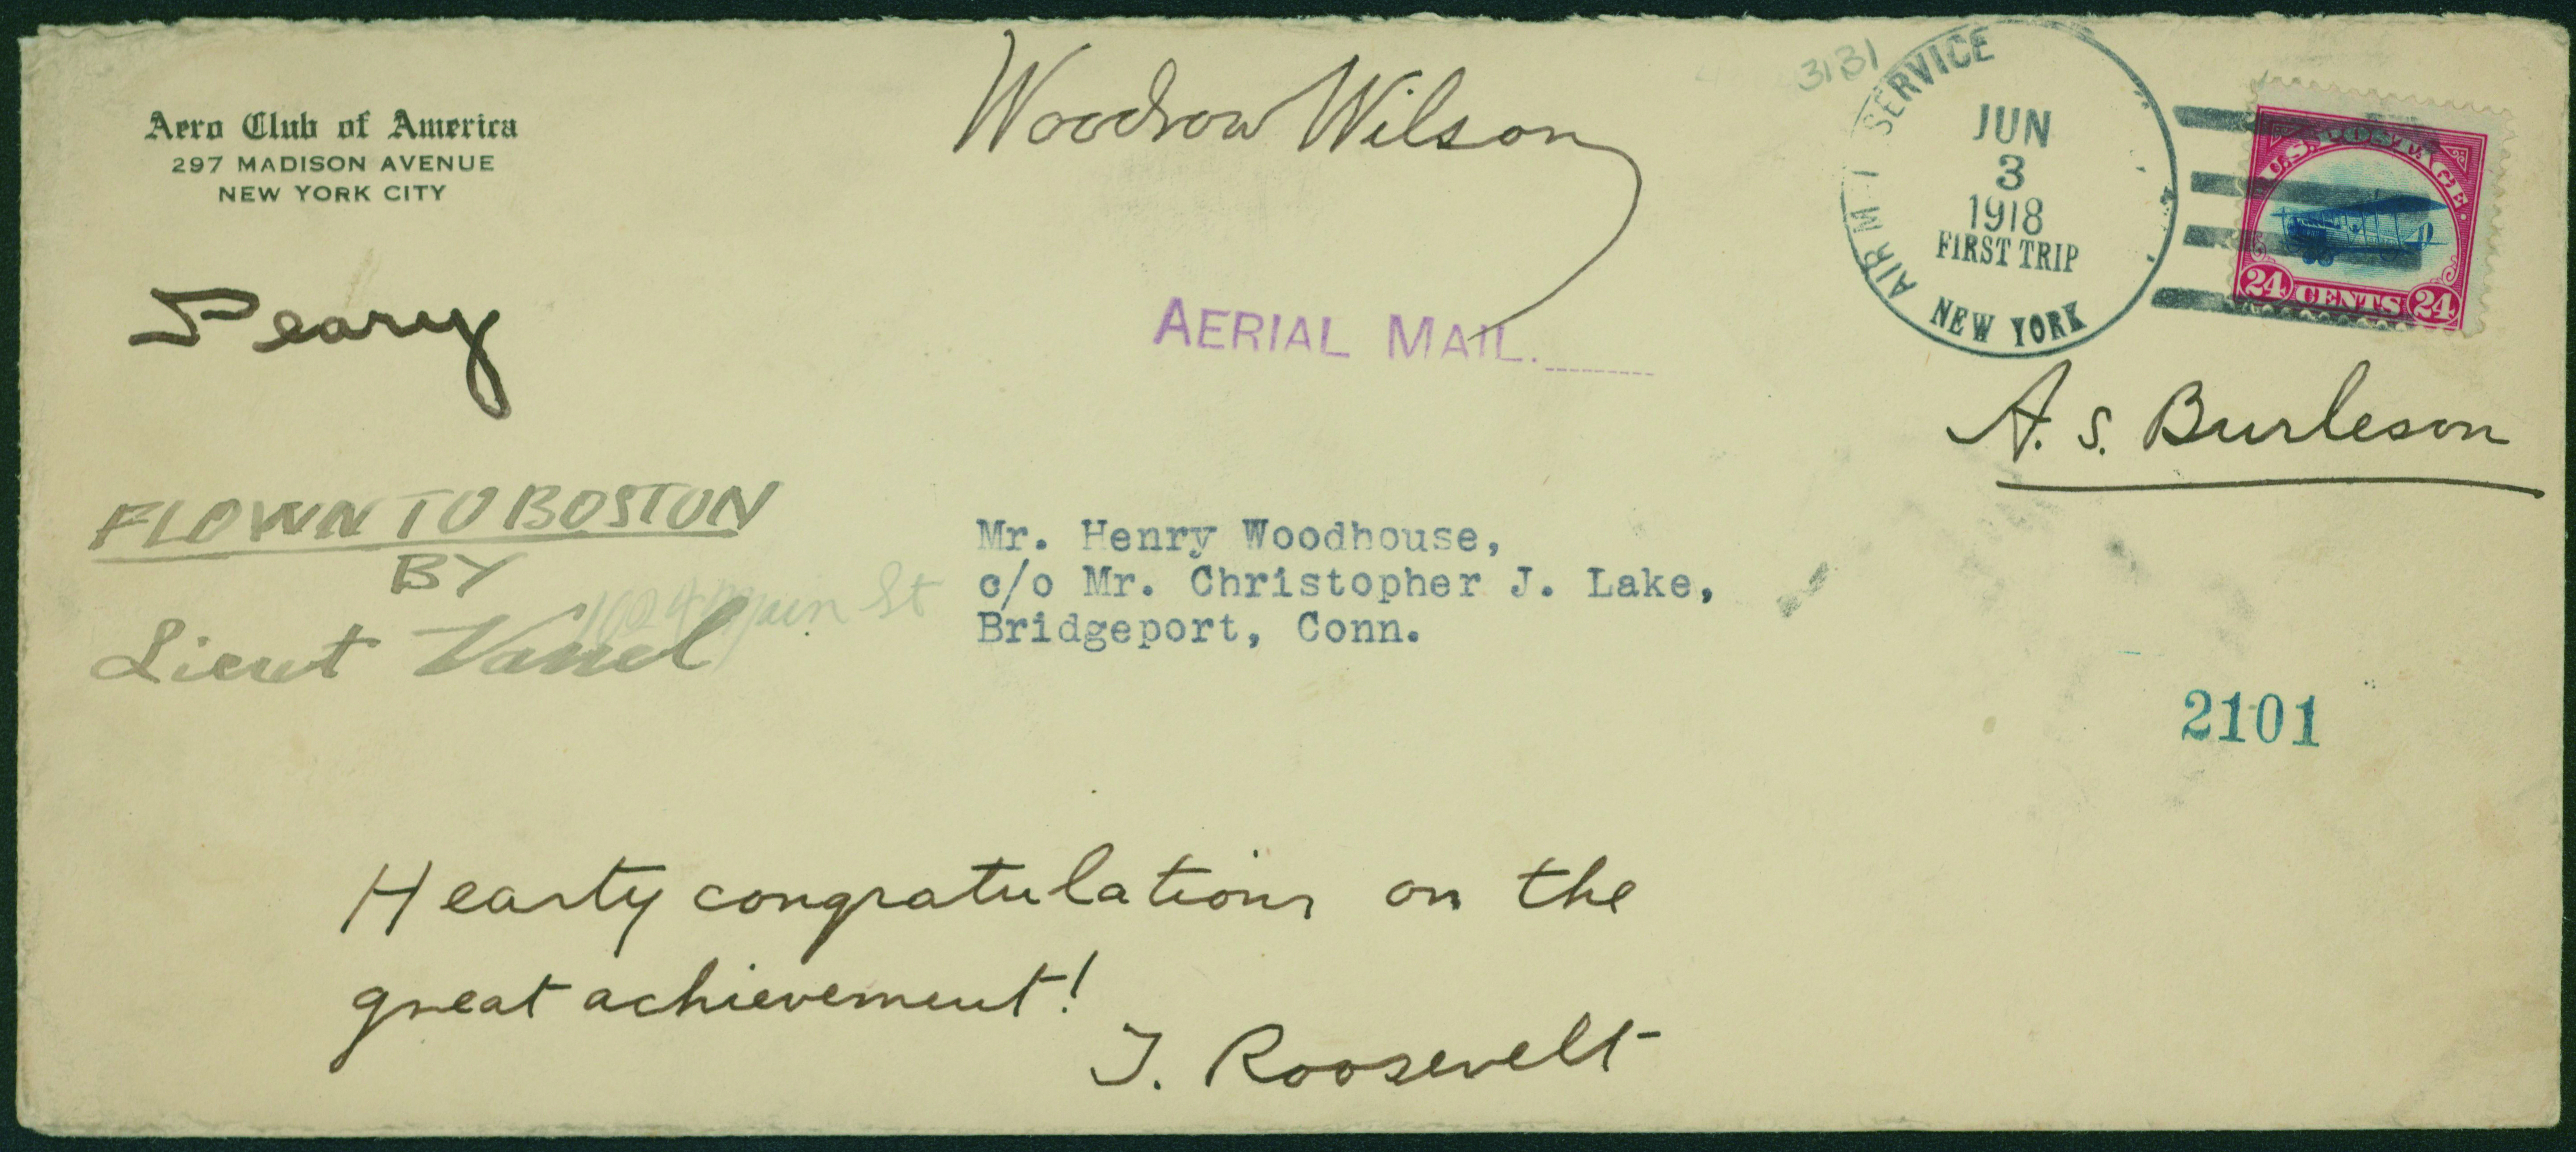 Aero Club of America
297 MADISON AVENUE
NEW YORK CITY
Woodrow Wilson
3131
AIR M I SERVICE
NEW YORK
JUN
3
1918
FIRST TRIP
U.S. POSTAGE.
24 CENTS 24
Peary
AERIAL MAIL.
A. S. Burleson
FLOWN TO BOSTON
BY
Lieut
1024 Main St
Mr. Henry Woodhouse,
c/o Mr. Christopher J. Lake,
Bridgeport, Conn.
2101
Hearty congratulations on the
great achievement!
T. Roosevelt